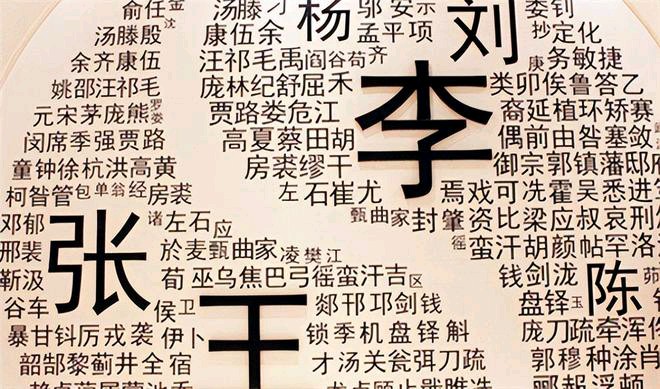 俞任金沈 汤滕刁 杨 邬安示 委钊
汤滕殷 康伍余 孟平项 刘 抄定化
余齐康伍 汪祁毛禹阎谷苟齐 庚务敏捷
姚邵汪祁毛 庞林纪舒屈禾 李 类卯俟鲁答乙
元宋茅庞熊罗娄 贾路娄危江 裔延植环矫赛
闵席季强贾路 高夏蔡田胡 偶前由昝塞敛
童钟徐杭洪高黄 房裘缪干 御宗郭镇藩邸府
柯昝管包单翁经房裘 左石崔尤 焉戏可冼霍吴悉进
邓郁 张 诸左石应 甄曲家封肇资比梁应叔哀刑
邢裴 於麻甄曲家凌樊江 徭蛮汗胡颜帖罕洛
靳汲 荀巫乌焦巴弓徭蛮汗吉区 钱剑泷 陈
谷车 侯卫 王 郯邗邛剑钱 盘铎玉
暴甘钭厉戎袭伊卜 锁季机盘铎斛 庞刀疏牵浑
韶郜黎蓟井全宿 才汤关瓮弭刀疏 郭穆种涂肖